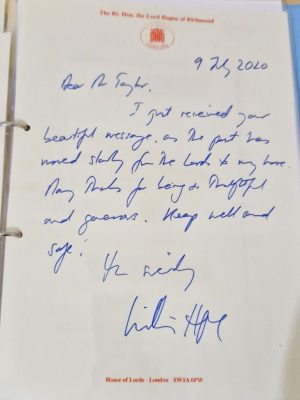 The Rt. Hon. the Lord Hague of Richmond
9 July 2020
Dear Mr Taylor,
I just received your
beautiful message, as the post has
moved slowly from the Lords to my home.
Many thanks for being so thoughtful
and generous. Keep well and
safe!
Yrs sincerely
William Hague
House of Lords London SW1A 0PW